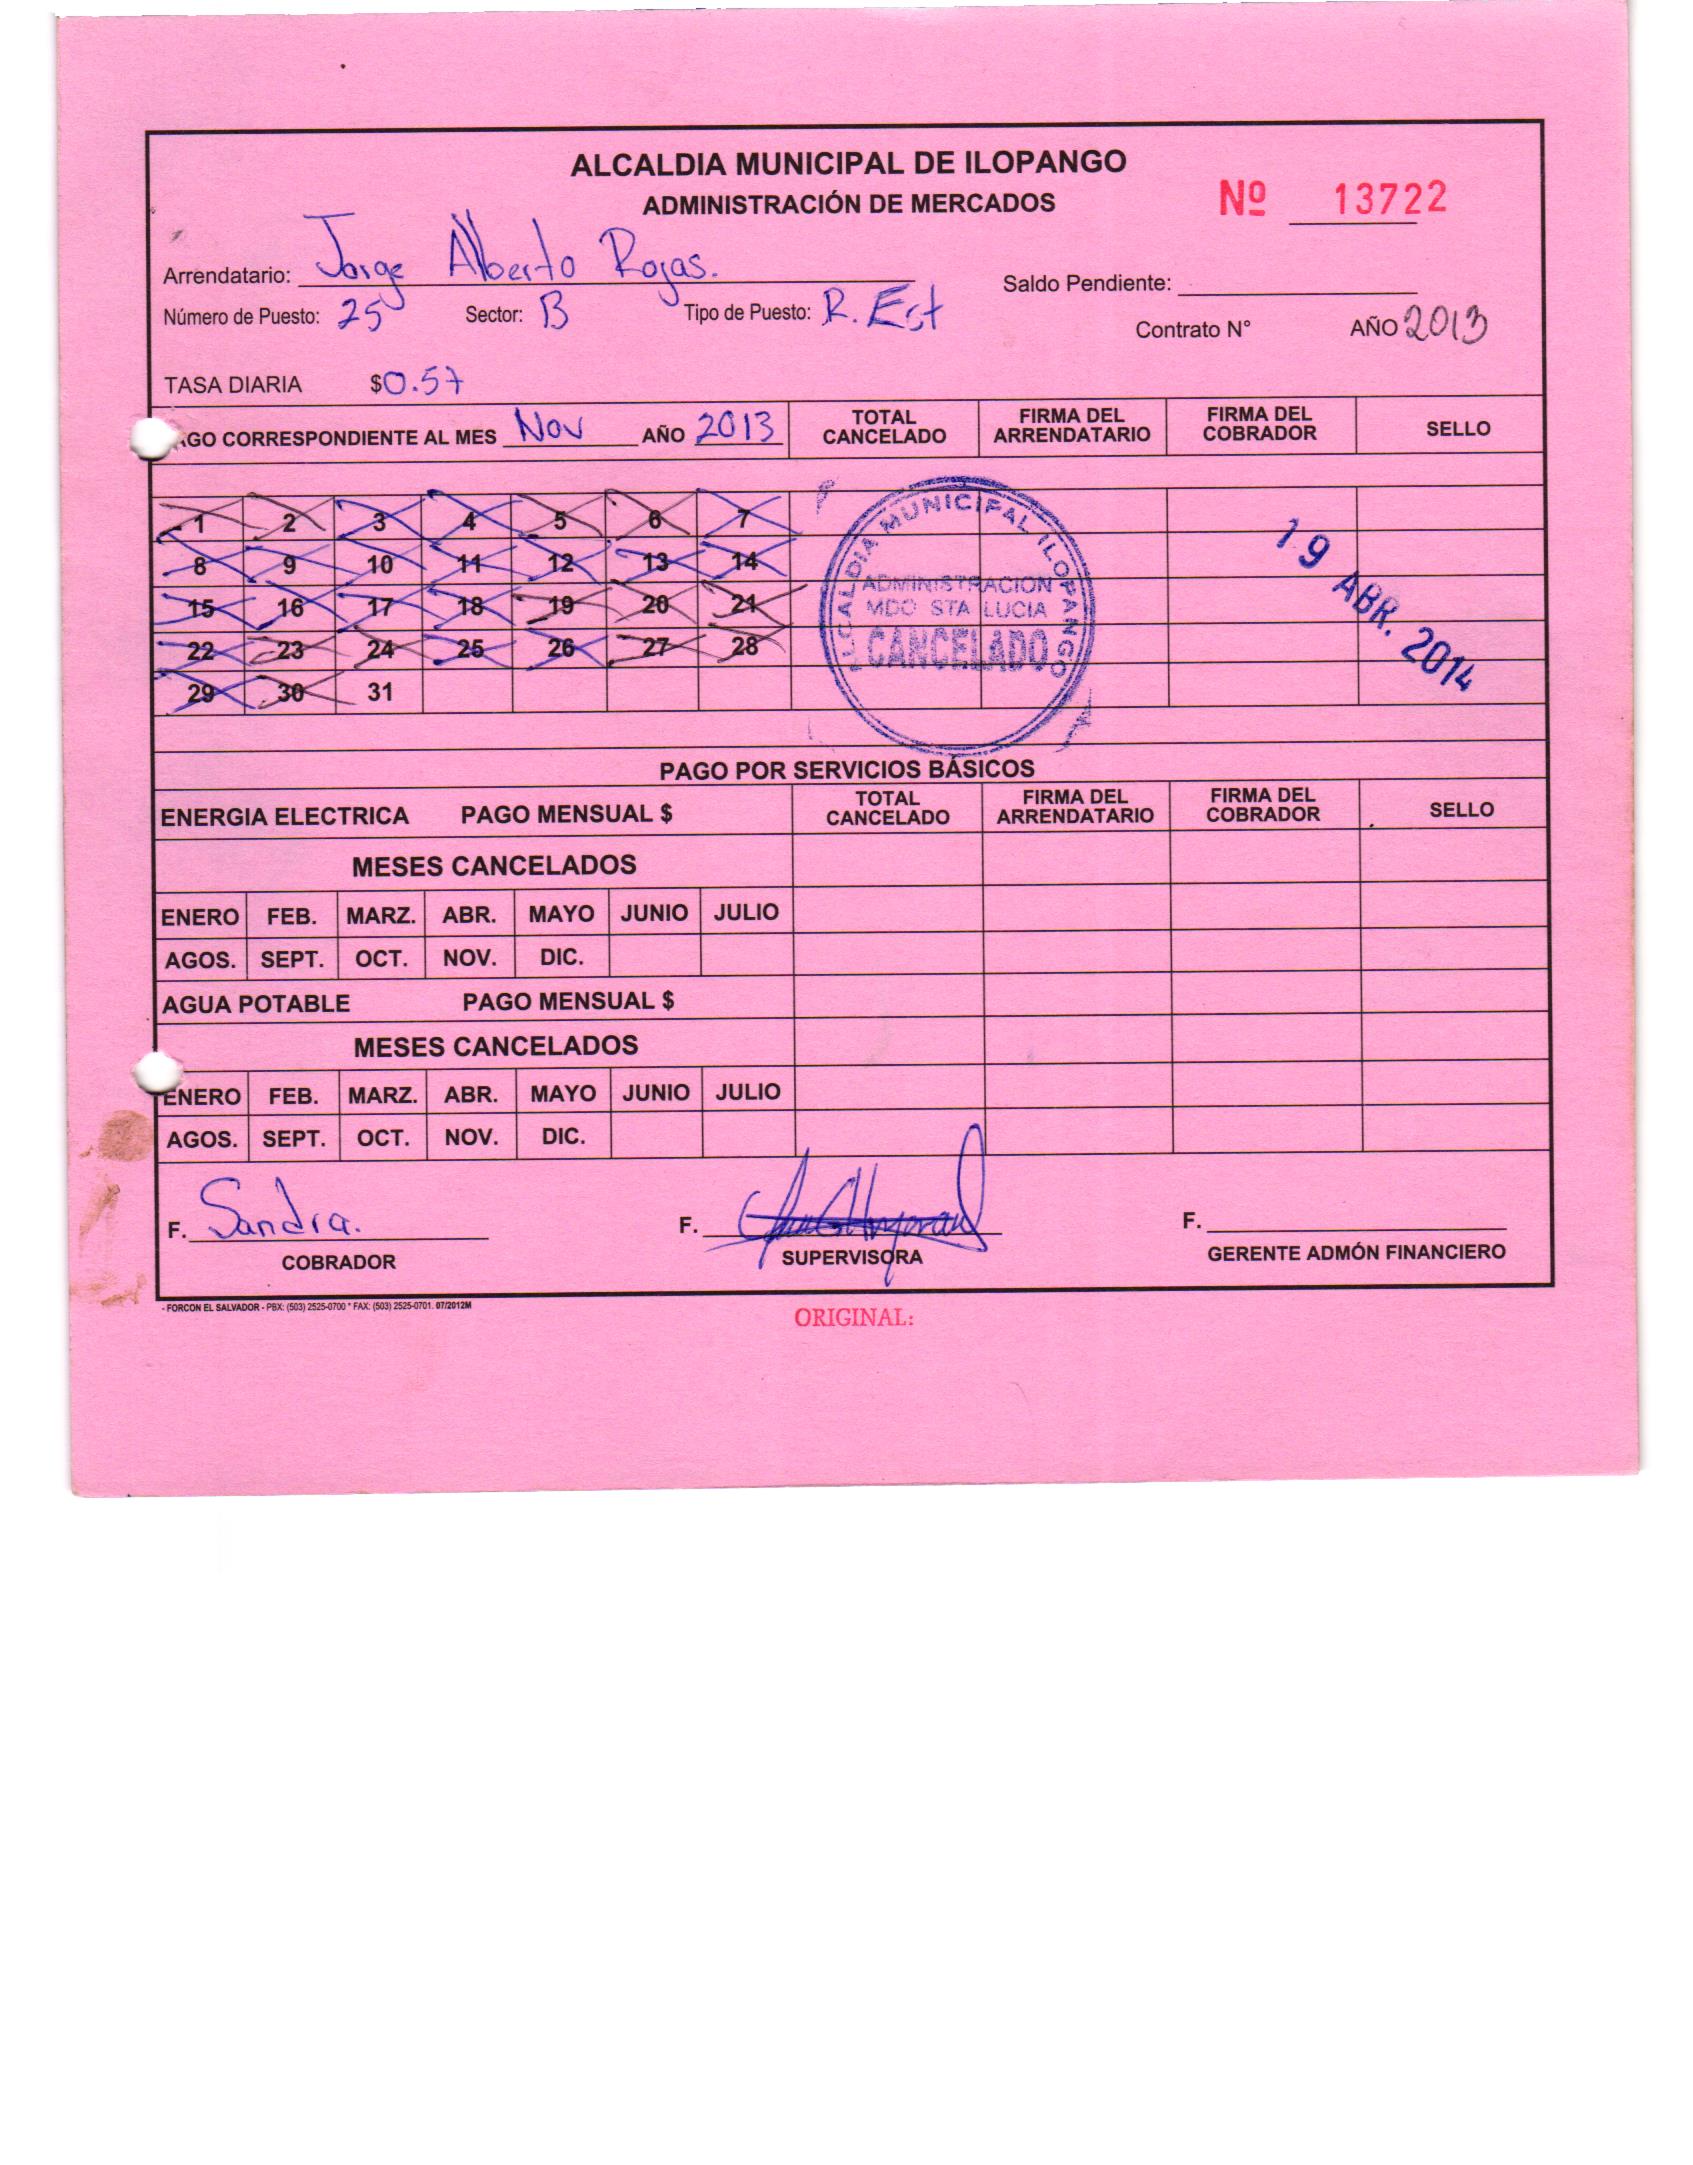 ALCALDIA MUNICIPAL DE ILOPANGO
ADMINISTRACIÓN DE MERCADOS
Nº 13722
Arrendatario: Jorge Alberto Rojas.
Saldo Pendiente:
Número de Puesto: 25 Sector: B Tipo de Puesto: R. Est
Contrato N° AÑO 2013
TASA DIARIA $0.57
AGO CORRESPONDIENTE AL MES Nov AÑO 2013 TOTAL CANCELADO FIRMA DEL ARRENDATARIO FIRMA DEL COBRADOR SELLO
1 2 3 4 5 6 7
8 9 10 11 12 13 14
15 16 17 18 19 20 21
22 23 24 25 26 27 28
29 30 31
ALCALDIA MUNICIPAL ILOPANGO
ADMINISTRACION
MDO STA LUCIA
CANCELADO
19 ABR. 2014
PAGO POR SERVICIOS BÁSICOS
ENERGIA ELECTRICA PAGO MENSUAL $ TOTAL CANCELADO FIRMA DEL ARRENDATARIO FIRMA DEL COBRADOR SELLO
MESES CANCELADOS
ENERO FEB. MARZ. ABR. MAYO JUNIO JULIO
AGOS. SEPT. OCT. NOV. DIC.
AGUA POTABLE PAGO MENSUAL $
MESES CANCELADOS
ENERO FEB. MARZ. ABR. MAYO JUNIO JULIO
AGOS. SEPT. OCT. NOV. DIC.
F. Sandra. F. F.
COBRADOR SUPERVISORA GERENTE ADMÓN FINANCIERO
- FORCON EL SALVADOR - PBX: (503) 2525-0700 * FAX: (503) 2525-0701. 07/2012M
ORIGINAL: